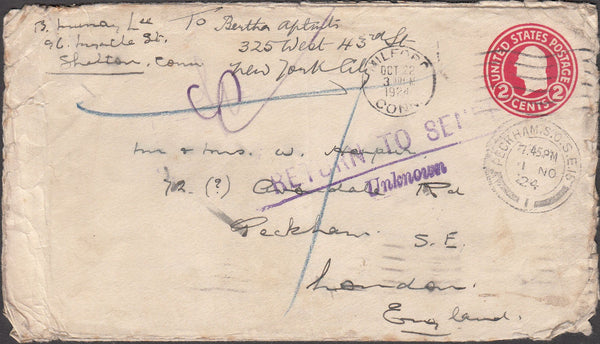 B. Murray Lee
96 Myrtle St.
Shelton, Conn
To Bertha
325 West 43rd St
New York City
MILFORD
OCT 22
3 PM
1924
CONN.
UNITED STATES POSTAGE
2 CENTS 2
RETURN TO SEN
Unknown
PECKHAM.S.O.S.E.15
7.45PM
1 NO
24
1
Mr & Mrs. W.
72 (?) Rd
Peckham. S.E.
London.
England.